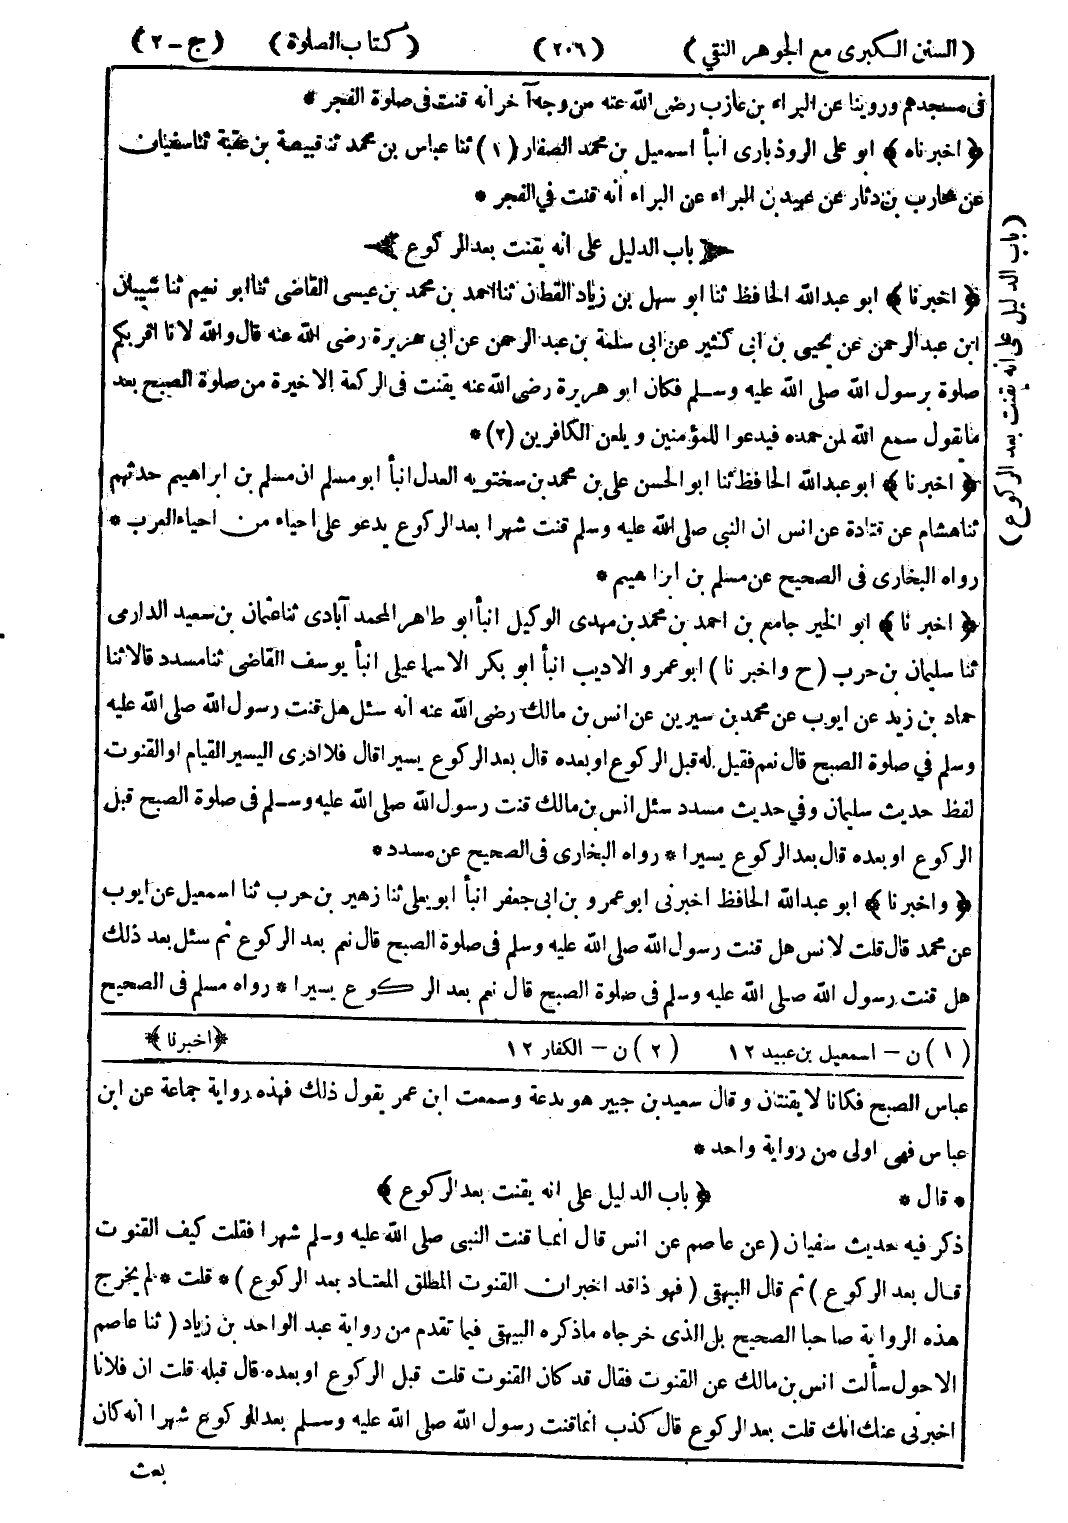 (السنن الكبرى مع الجوهر النقي) (٢٠٦) (كتاب الصلوة) (ج - ٢)
فى مسجدهم وروينا عن البراء بن عازب رضى الله عنه من وجه آخر انه قنت فى صلوة الفجر *
﴿ اخبرناه ﴾ ابو على الروذبارى انبأ اسمعيل بن محمد الصفار (١) ثنا عباس بن محمد ثنا قبيصة بن عقبة ثنا سفيان
عن محارب بن دثار عن عبيد بن البراء عن البراء انه قنت في الفجر *
﴿ باب الدليل على انه يقنت بعد الركوع ﴾
(باب الدليل على انه يقنت بعد الركوع)
﴿ اخبرنا ﴾ ابو عبد الله الحافظ ثنا ابو سهل بن زياد القطان ثنا احمد بن محمد بن عيسى القاضى ثنا ابو نعيم ثنا شيبان
ابن عبد الرحمن عن يحيى بن ابى كثير عن ابى سلمة بن عبد الرحمن عن ابى هريرة رضى الله عنه قال والله لانا اقربكم
صلوة برسول الله صلى الله عليه وسلم فكان ابو هريرة رضى الله عنه يقنت فى الركعة الاخيرة من صلوة الصبح بعد
ما يقول سمع الله لمن حمده فيدعوا للمؤمنين ويلعن الكافرين (٢) *
﴿ اخبرنا ﴾ ابو عبد الله الحافظ ثنا ابو الحسن على بن محمد بن سختويه العدل انبأ ابو مسلم ان مسلم بن ابراهيم حدثهم
ثنا هشام عن قتادة عن انس ان النبى صلى الله عليه وسلم قنت شهرا بعد الركوع يدعو على احياء من احياء العرب *
رواه البخارى فى الصحيح عن مسلم بن ابراهيم *
﴿ اخبرنا ﴾ ابو الخير جامع بن احمد بن محمد بن مهدى الوكيل انبأ ابو طاهر المحمد آبادى ثنا عثمان بن سعيد الدارمى
ثنا سليمان بن حرب (ح واخبرنا) ابو عمرو الاديب انبأ ابو بكر الاسماعيلى انبأ يوسف القاضى ثنا مسدد قالا ثنا
حماد بن زيد عن ايوب عن محمد بن سيرين عن انس بن مالك رضى الله عنه انه سئل هل قنت رسول الله صلى الله عليه
وسلم في صلوة الصبح قال نعم فقيل له قبل الركوع او بعده قال بعد الركوع يسيرا قال فلا ادرى اليسير القيام او القنوت
لفظ حديث سليمان وفي حديث مسدد سئل انس بن مالك قنت رسول الله صلى الله عليه وسلم فى صلوة الصبح قبل
الركوع او بعده قال بعد الركوع يسيرا * رواه البخارى فى الصحيح عن مسدد *
﴿ واخبرنا ﴾ ابو عبد الله الحافظ اخبرنى ابو عمرو بن ابى جعفر انبأ ابو يعلى ثنا زهير بن حرب ثنا اسمعيل عن ايوب
عن محمد قال قلت لانس هل قنت رسول الله صلى الله عليه وسلم فى صلوة الصبح قال نعم بعد الركوع ثم سئل بعد ذلك
هل قنت رسول الله صلى الله عليه وسلم فى صلوة الصبح قال نعم بعد الركوع يسيرا * رواه مسلم فى الصحيح
(١) ن - اسمعيل بن عبيد ١٢ (٢) ن - الكفار ١٢ ﴿ اخبرنا ﴾
عباس الصبح فكانا لا يقنتان وقال سعيد بن جبير هو بدعة وسمعت ابن عمر يقول ذلك فهذه رواية جماعة عن ابن
عباس فهى اولى من رواية واحد *
* قال * ﴿ باب الدليل على انه يقنت بعد الركوع ﴾
ذكر فيه حديث سفيان (عن عاصم عن انس قال انما قنت النبى صلى الله عليه وسلم شهرا فقلت كيف القنوت
قال بعد الركوع) ثم قال البيهقى (فهو ذا قد اخبر ان القنوت المطلق المعتاد بعد الركوع) * قلت * لم يخرج
هذه الرواية صاحبا الصحيح بل الذى خرجاه ما ذكره البيهقى فيما تقدم من رواية عبد الواحد بن زياد (ثنا عاصم
الاحول سألت انس بن مالك عن القنوت فقال قد كان القنوت قلت قبل الركوع او بعده قال قبله قلت ان فلانا
اخبرنى عنك انك قلت بعد الركوع قال كذب انما قنت رسول الله صلى الله عليه وسلم بعد الركوع شهرا انه كان
بعث